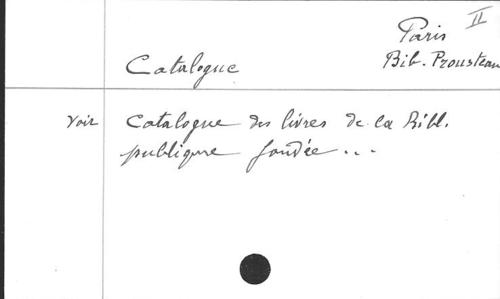 II
Paris
Catalogue Bib. Prousteau
Voir Catalogue des livres de la Bibl.
publique fondée...